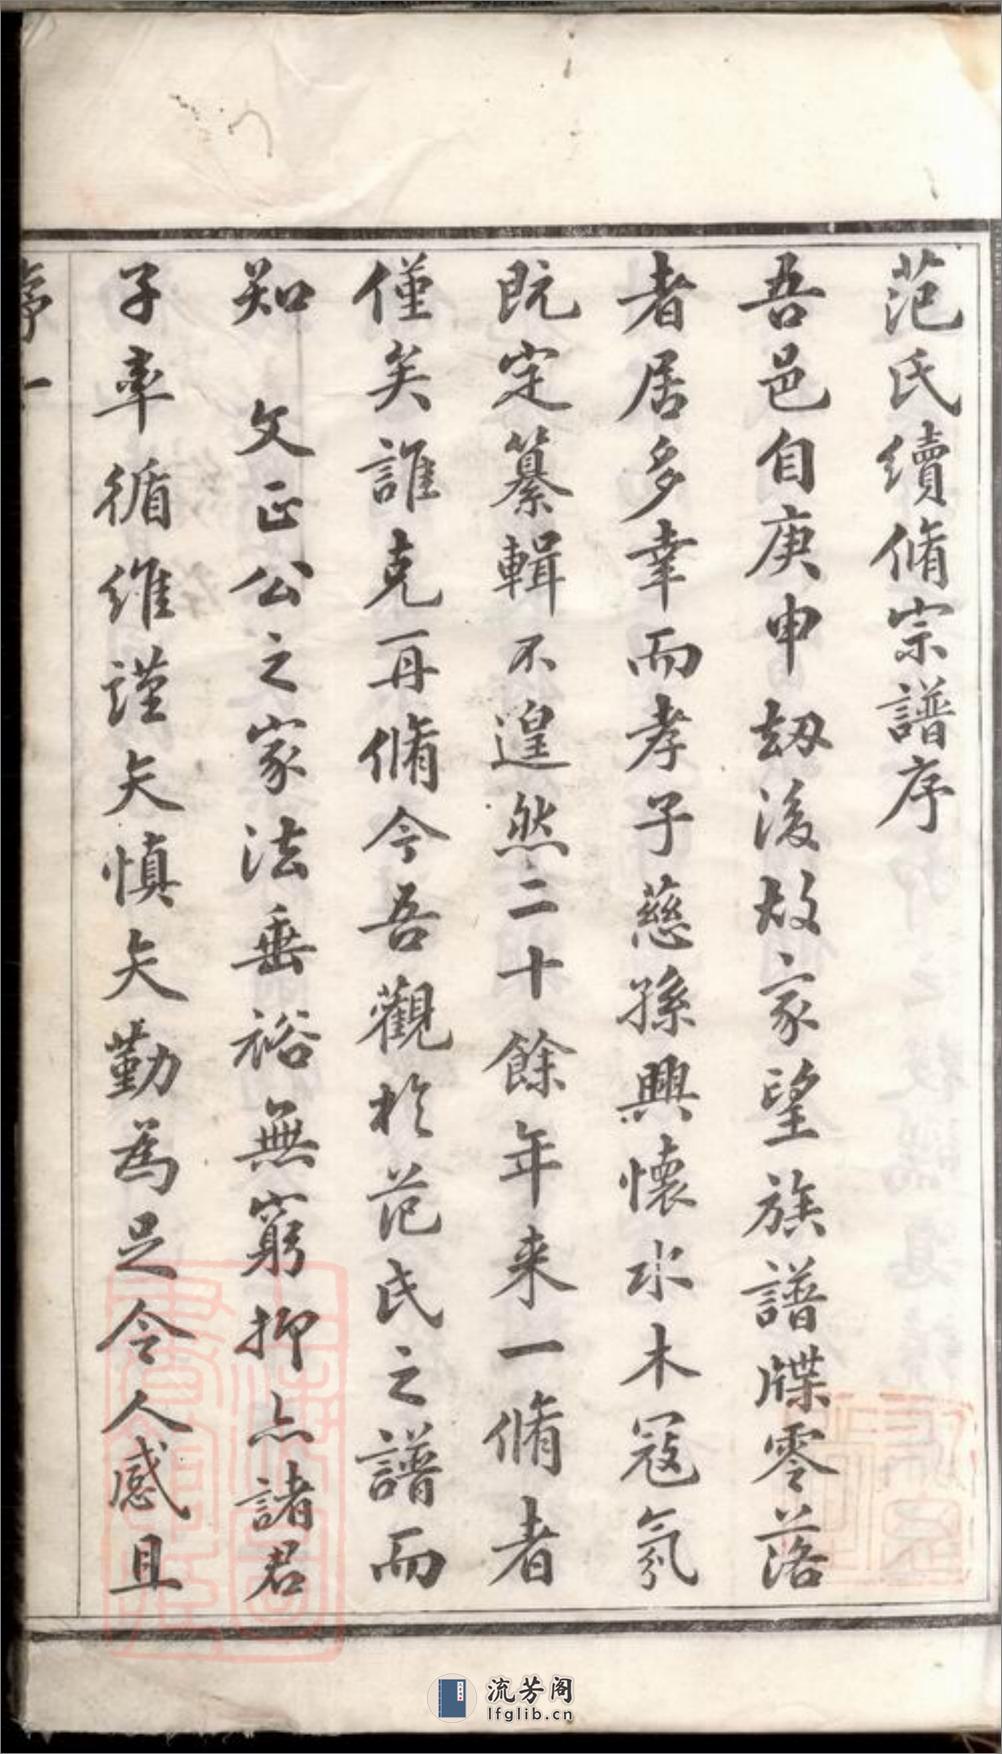 范氏續脩宗譜序
吾邑自庚申劫後故家望族譜牒零落
者居多幸而孝子慈孫興懷水木寇氛
既定纂輯不遑然二十餘年来一脩者
僅矣誰克再脩今吾觀於范氏之譜而
知 文正公之家法垂裕無窮抑亦諸君
子率循維謹矢慎矢勤為足令人感且
序 一
流芳阁
lfglib.cn